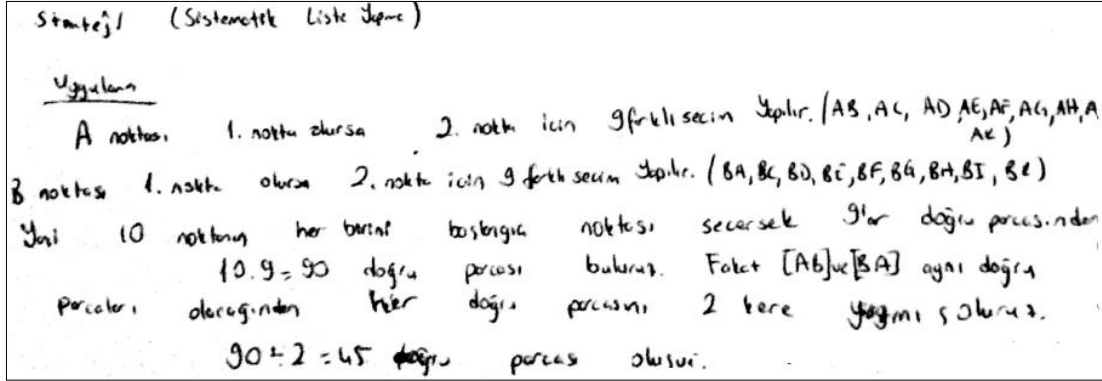 Strateji (Sistematik Liste Yapma)
Uygulama
A noktası 1. nokta olursa 2. nokta için 9 farklı seçim yapılır. (AB, AC, AD, AE, AF, AG, AH, A
AK)
B noktası 1. nokta olursa 2. nokta için 9 farklı seçim yapılır. (BA, BC, BD, BE, BF, BG, BH, BI, BK)
Yani 10 noktanın her birini başlangıç noktası seçersek 9'ar doğru parçasından
10.9=90 doğru parçası buluruz. Fakat [AB] ve [BA] aynı doğru
parçaları olacağından her doğru parçasını 2 kere yazmış oluruz.
90÷2=45 doğru parçası oluşur.